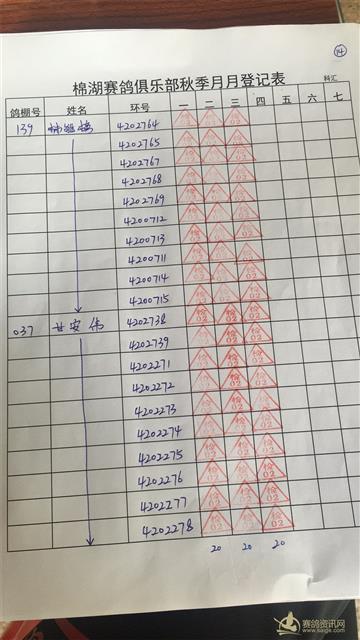 14
棉湖赛鸽俱乐部秋季月月登记表
料汇
鸽棚号 姓名 环号 一 二 三 四 五 六 七
139 4202764
4202765
4202767
4202768
4202769
4200712
4200713
4200711
4200714
4200715
037 甘安伟 4202738
4202739
4202271
4202272
4202273
4202274
4202275
4202276
4202277
4202278
20 20 20
赛鸽资讯网
www.saige.com